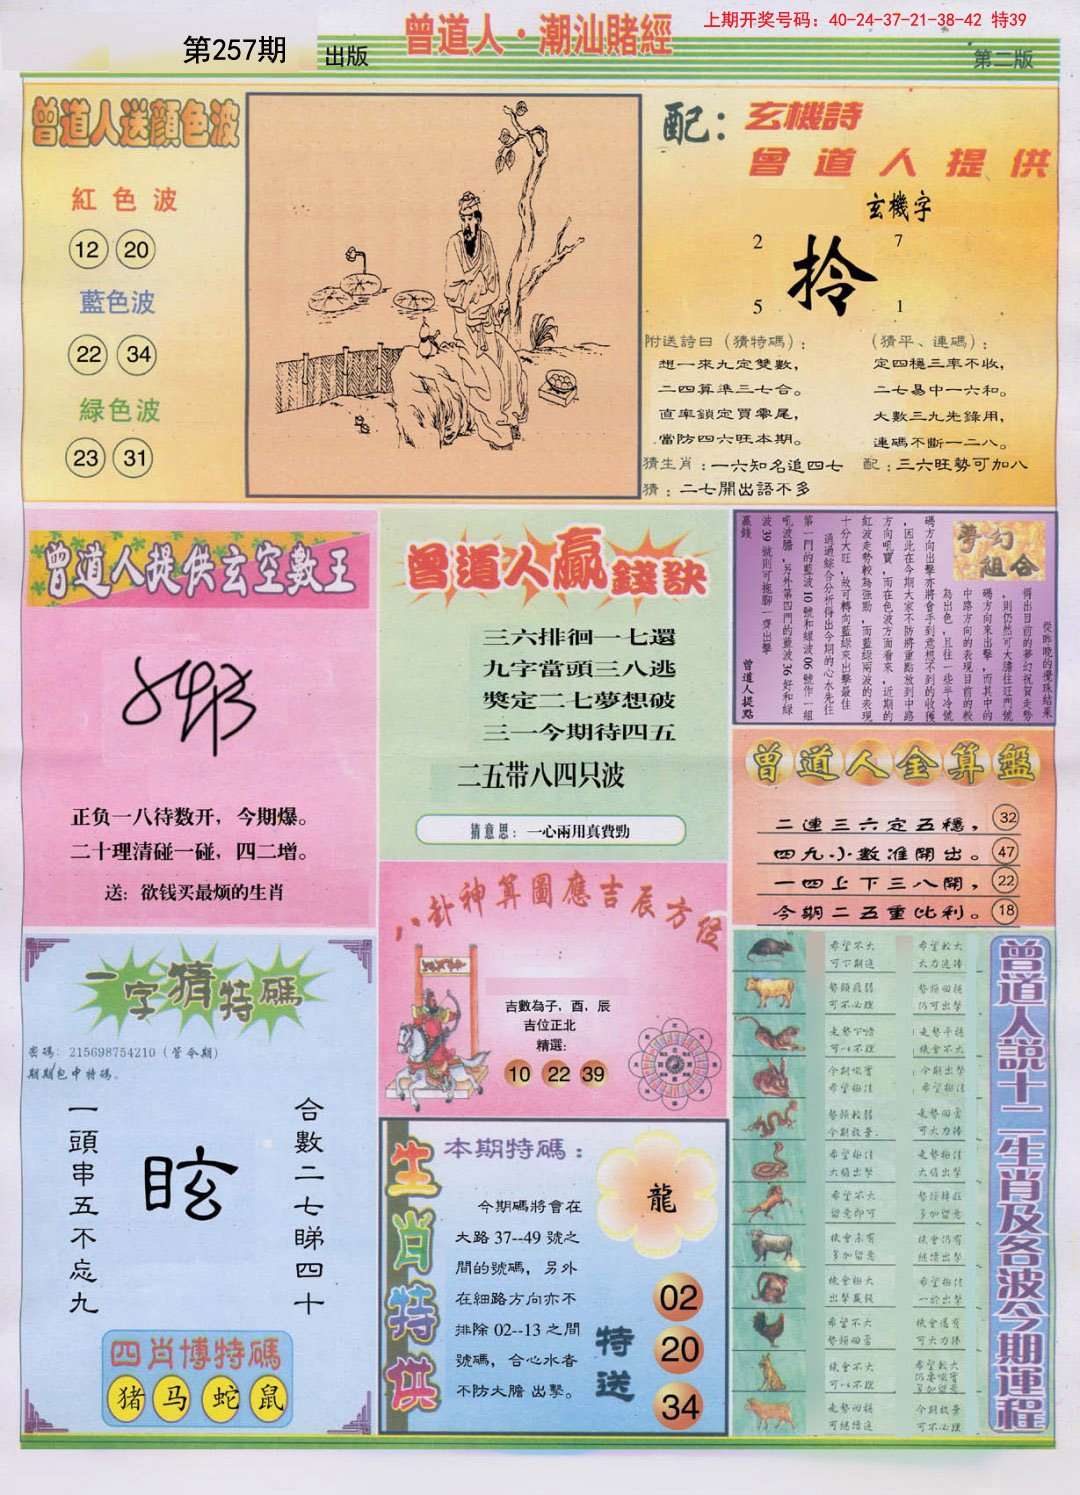 上期开奖号码：40-24-37-21-38-42 特39
第257期
出版
曾道人·潮汕賭經
第二版
曾道人送顔色波
紅色波
12 20
藍色波
22 34
緑色波
23 31
配：玄機詩
曾道人提供
玄機字
2 7
拎
5 1
附送詩曰（猜特碼）：
想一來九定雙數，
二四算準三七合。
直率鎖定買零尾，
當防四六旺本期。
（猜平、連碼）：
定四穩三率不收，
二七易中一六和。
大數三九先錄用，
連碼不斷一二八。
猜生肖：一六知名追四七
配：三六旺勢可加八
猜：二七開出語不多
曾道人提供玄空數王
正负一八待数开，今期爆。
二十理清碰一碰，四二增。
送：欲钱买最烦的生肖
曾道人贏錢訣
三六排徊一七還
九字當頭三八逃
獎定二七夢想破
三一今期待四五
二五带八四只波
猜意思：一心兩用真費勁
夢幻組合
從昨晚的攪珠結果
得出目前的夢幻祝賀走勢
，則仍然可大膽往旺門號
碼方向來出擊，而其中的
中路方向的表現目前的較
為出色，且往一些半冷號
碼方向出擊亦將會手到意想不到的收獲
，因此在今期大家不防將重點放到中路
方向吼寶，而在色波方面看來，近期的
紅波走勢較為強勁，而藍綠兩波的表現
十分大旺，故可轉向藍綠來出擊最佳
，通過綜合分析得出今期的心水先往
第一門的藍波10號和綠波06號作一組
吼波膽，另外第四門的藍波36好和綠
波39號則可拖腳一齊出擊
贏錢
曾道人提點
曾道人金算盤
二連三六定五穩， 32
四九小數准開出。 47
一四上下三八開， 22
今期二五重比利。 18
八卦神算圖應吉辰方位
吉數為子，酉，辰
吉位正北
精選：
10 22 39
一字猜特碼
密碼：215698754210（管今期）
期期包中特碼、
一頭串五不忘九
眩
合數二七睇四十
四肖博特碼
猪 马 蛇 鼠
生肖特供
本期特碼：
今期碼將會在
大路37--49號之
間的號碼，另外
在細路方向亦不
排除02--13之間
號碼，合心水者
不防大膽出擊。
龍
特送
02
20
34
曾道人說十二生肖及各波今期運程
希望不大 希望較大
可下期進 大力追捧
今期吼寶 今期出擊
希望極佳 希望極佳
大膽出擊 大膽出擊
留意即可 多加留意
多加留意 繼續出擊
機會極大 希望極佳
出擊贏錢 一於出擊
希望不大 機會還有
機會不大 希望較大
走勢回穩 今期放棄
可繼續進 可不必理